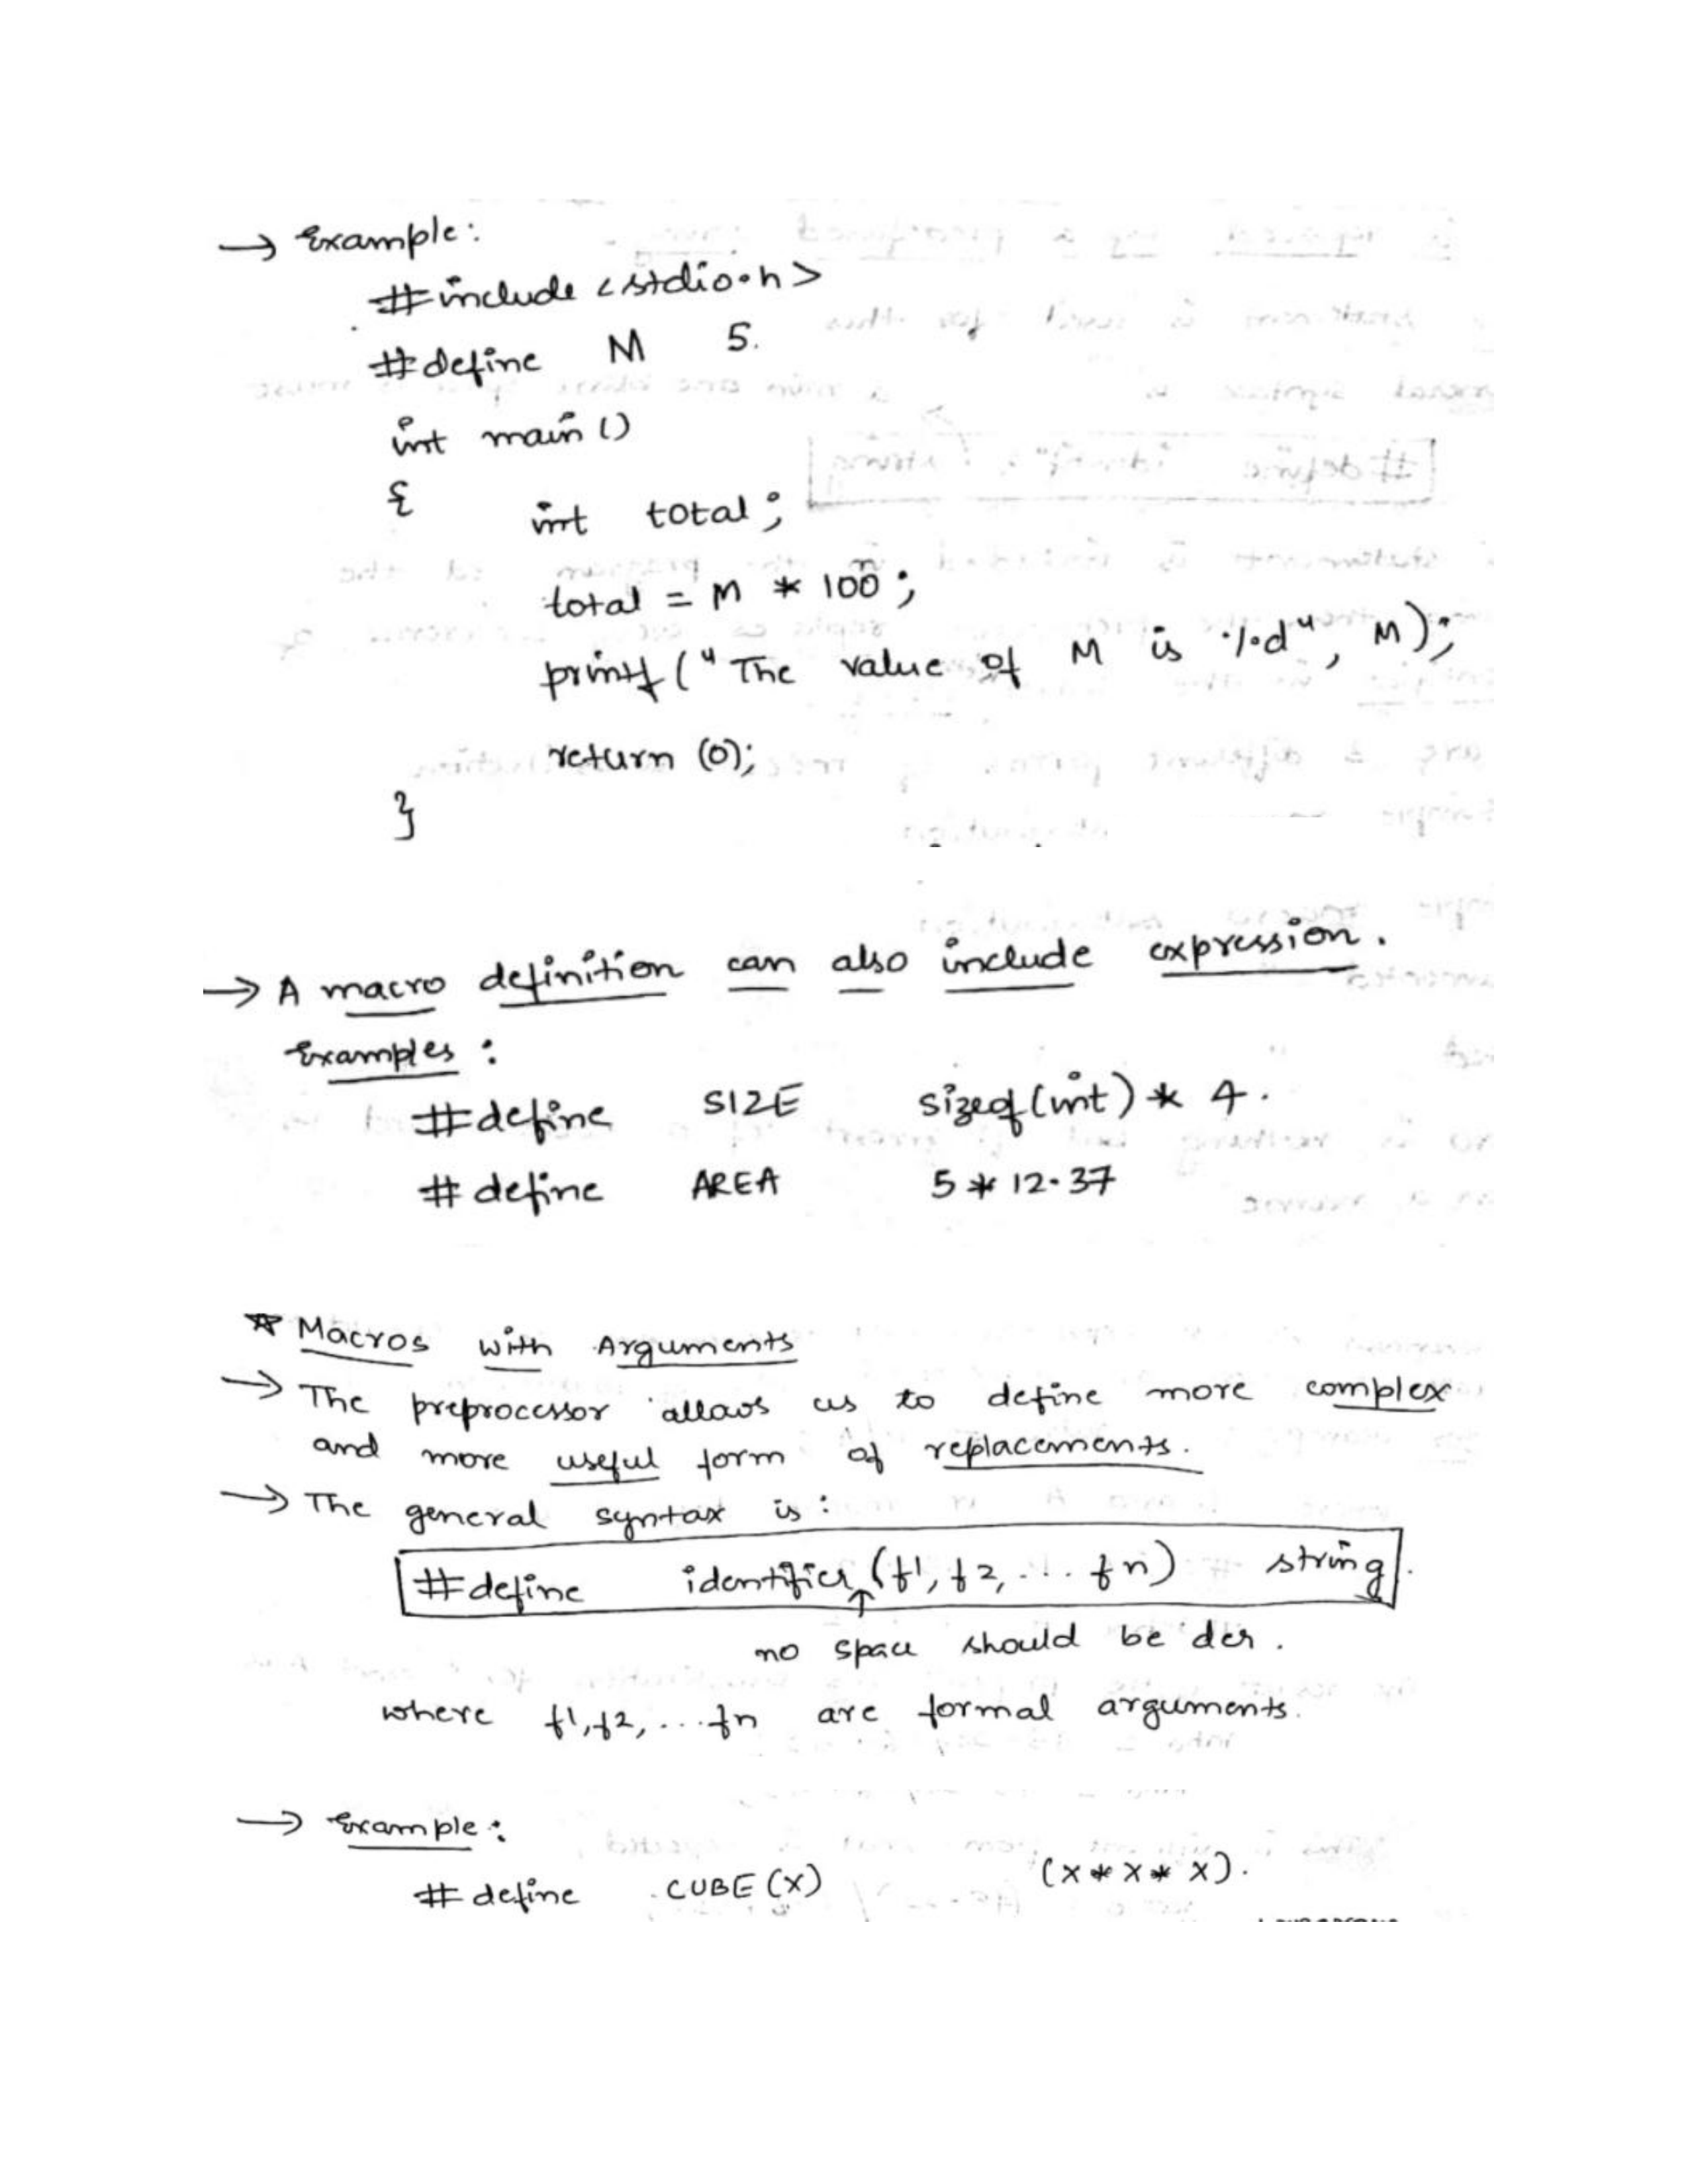 → Example:
#include <stdio.h>
#define M 5.
int main()
{
int total;
total = M * 100;
printf("The value of M is %d", M);
return (0);
}
→ A macro definition can also include expression.
Examples:
#define SIZE sizeof(int) * 4.
#define AREA 5 * 12.37
* Macros with Arguments
→ The preprocessor allows us to define more complex
and more useful form of replacements.
→ The general syntax is:
#define identifier(f1, f2, ... fn) string.
↑
no space should be der.
where f1, f2, ... fn are formal arguments.
→ Example:
#define CUBE(X) (X * X * X).